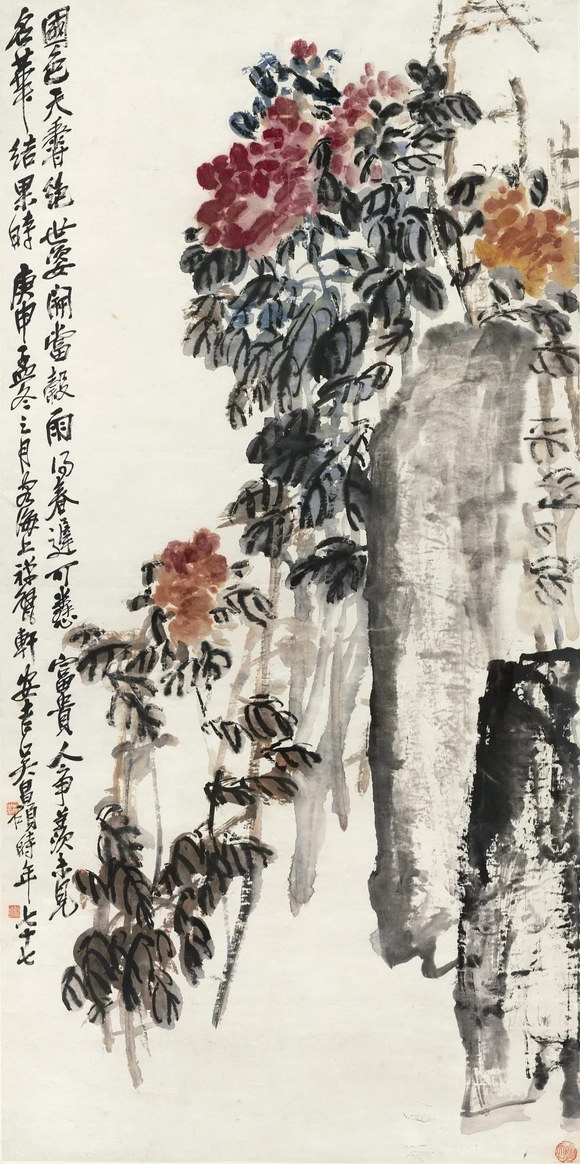 國色天香絕世姿開當穀雨得春遲可富貴人爭羨未見
名華結果時庚申孟冬之月客海上禪甓軒安吉吳昌碩時年七十七